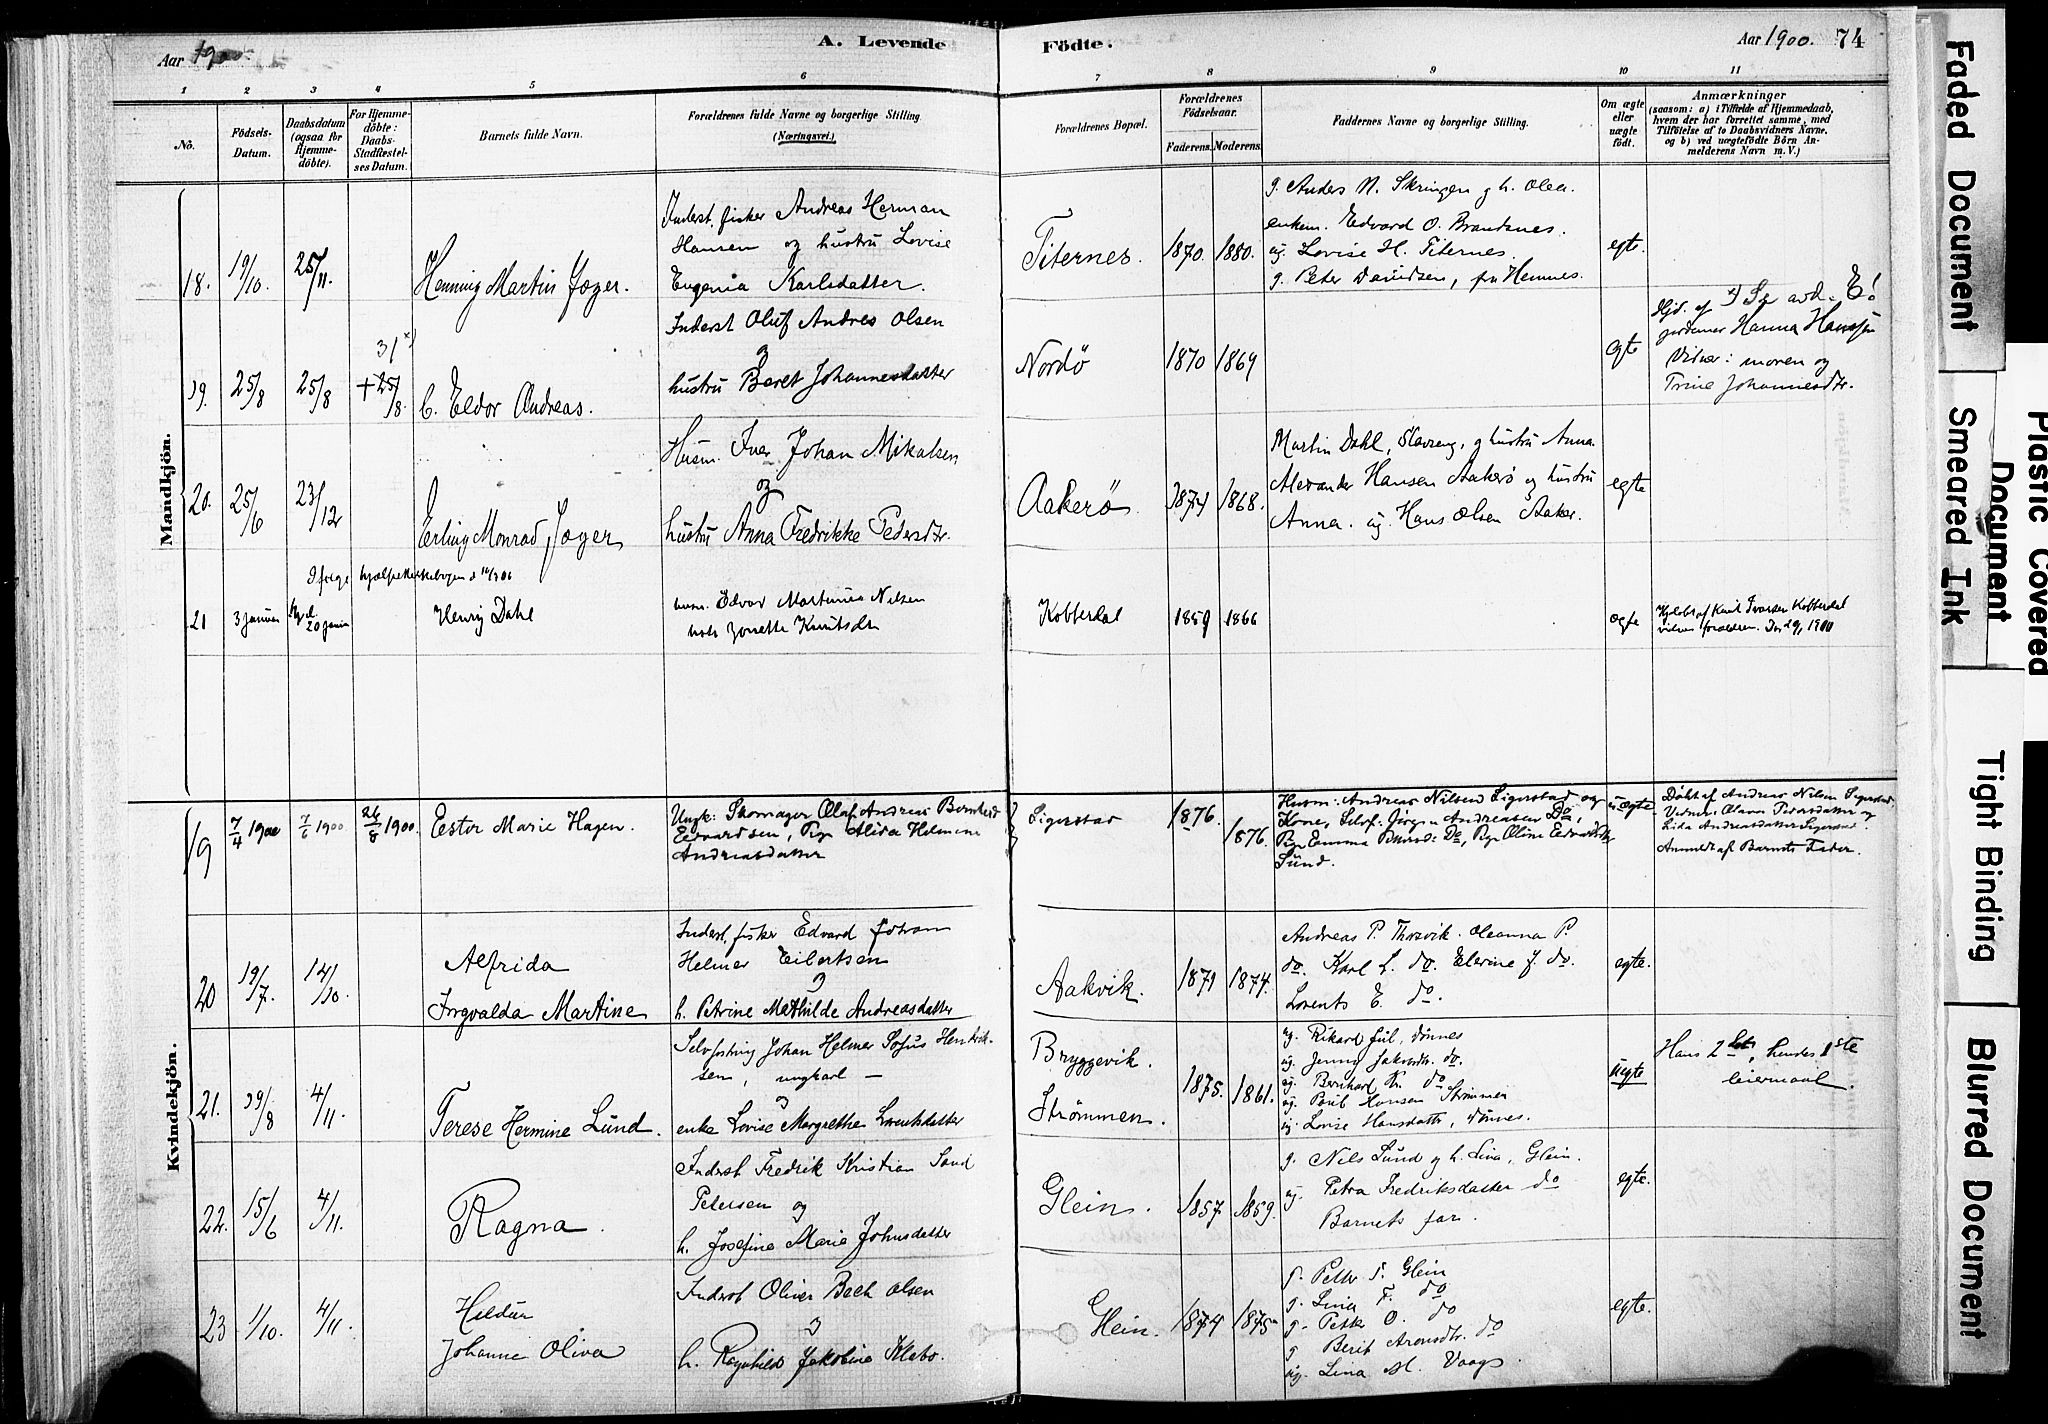 Aar 1900.
A. Levende
Födte.
Aar 1900. 74
1 2 3 4 5 6 7 8 9 10 11
No.
Födsels-Datum.
Daabsdatum (ogsaa for Hjemme-döbte).
For Hjemme-döbte: Daabs-Stadfæstel-ses Datum.
Barnets fulde Navn.
Forældrenes fulde Navne og borgerlige Stilling. (Næringsvei.)
Forældrenes Bopæl.
Forældrenes Födselsaar.
Faderens. Moderens.
Faddernes Navne og borgerlige Stilling.
Om ægte eller uægte födt.
Anmærkninger
(saasom: a) i Tilfælde af Hjemmedaab, hvem der har forrettet samme, med Tilföielse af to Daabsvidners Navne, og b) ved uægtefödte Börn Anmelderens Navn m. V.)
Mandkjön.
18. 19/10. 25/11. Henning Martin Jæger.
Inderst, fisker Andreas Herman
Hansen og hustru Lovise
Eugenia Karlsdatter.
Titernes. 1870. 1880.
g. Anders N. Skringen g h. Olea.
enkem. Edvard O. Brandsnes.
ug. Lovise H. Titernes.
g. Peter Davidsen, fra Hemnes.
egte.
19. 25/8 25/8 31 x) + 25/8. C. Eldor Andreas.
Inderst Oluf Andres Olsen
og
hustru Beret Johannesdatter
Nordö 1870 1869
egte
x) Se avd. E!
Hjd. af
jordemor Hanna Hansen
Vidner: moren og
Trine Johannesdtr.
20. 25/6 23/12 Erling Monrad Jæger
Husm. Iver Johan Mikalsen
og
hustru Anna Fredrikke Pedersdtr.
Aakerö 1874 1868.
Martin Dahl, Slavreng, g hustru Anna.
Alexander Hansen Aakerö og hustru
Anna. ug. Hans Olsen Aaker.
egte
21 3 januar 20 januar Henry Dahl
husm. Edvar Martinus Nilsen
Kobberdal 1859 1866
egte
Hjdöbt af Knut Ivarsen Kobberdal
Kvindekjön.
19 7/4 1900 7/6 1900 26/8 1900. Ester Marie Hagen.
Ungk: Skomager Olaf Andreas Bernhard
Edvardsen, Pige Alida Helmine
Andreasdatter
Sigerstad 1876. 1876.
Husm: Andreas Nilsen Sigerstad og
Kone, Selvf. Jörgen Andreasen Do,
Pige Emma Do, Pige Oline Edvardsdtr
Sund.
uægte.
Döbt af Andreas Nilsen Sigerstad.
Vidner: Olava Pedersdatter og
Lida Andreasdatter Sigerstad.
Anmeldt af Barnets Fader.
20 19/7. 14/10. Alfrida
Ingvalda Martine
Inderst, fisker Edvard Johan
Helmer Eibertsen
og
h. Petrine Mathilde Andreasdatter
Aakvik. 1871 1874.
Andreas P. Thorvik. Oleanna P.
do. Karl L. do. Elerine J. do.
Lorents E. do.
egte.
21. 29/8 4/11. Terese Hermine Lund.
Johan Helmer Sofus Henrik-
sen, ungkarl —
og
enke Lovise Margrethe Lorentsdatter
Bryggevik.
Strömmen. 1875. 1861.
ug. Rikard Jul, Dönnes
ug. Jenny Jakobsdtr. do.
ug. Bernhard Kr. do
ug. Paul Hansen Strömmen
ug. Lovise Hansdatter, Dönnes.
uegte
Hans 2det, hendes 1ste
leiermaal.
22. 15/6 4/11. Ragna.
Inderst Fredrik Kristian Sand
Petersen og
h. Josefine Marie Johnsdatter
Glein. 1857. 1859.
g. Nils Lund g h. Lina, Glein.
ug. Petra Fredriksdatter do
Barnets far.
egte.
23 1/10. 4/11. Hildur
Johanne Oliva
Inderst Oliver Bech Olsen
og
h. Ragnhild Jakobine Klabo.
Glein. 1874 1875
g. Petter P. Glein
g. Lina F. do
g. Petter O. do
g Berit Aronsdtr. do
ug. Lina M. Vaags.
egte.
Faded Document
Smeared Ink
Plastic Covered Document
Tight Binding
Blurred Document